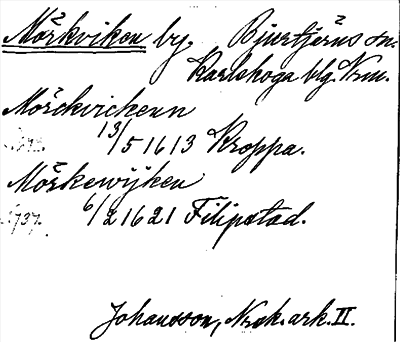 Mörkviken by. Bjurtjärns sn.
Karlskoga blg. Vrm.
Mörckvickenn
13/5 1613 Kroppa.
Mörkewijken
737. 6/2 1621 Filipstad.
Johansson, Nrok. ark. II.